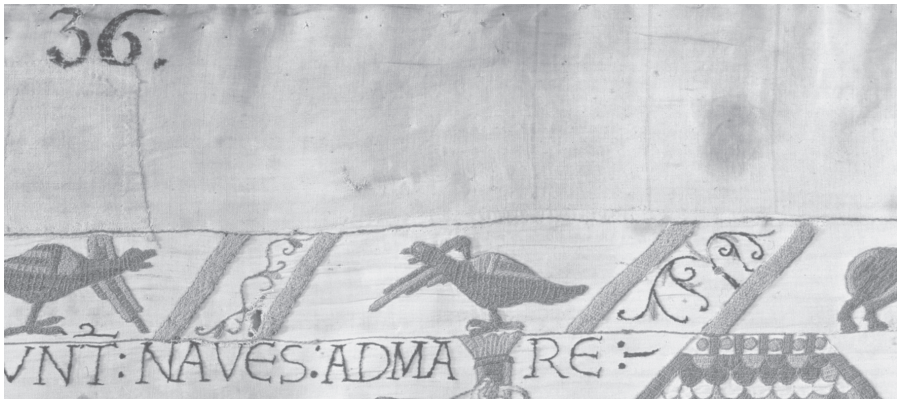 36.
VNT̄: NAVES: ADMARE:-